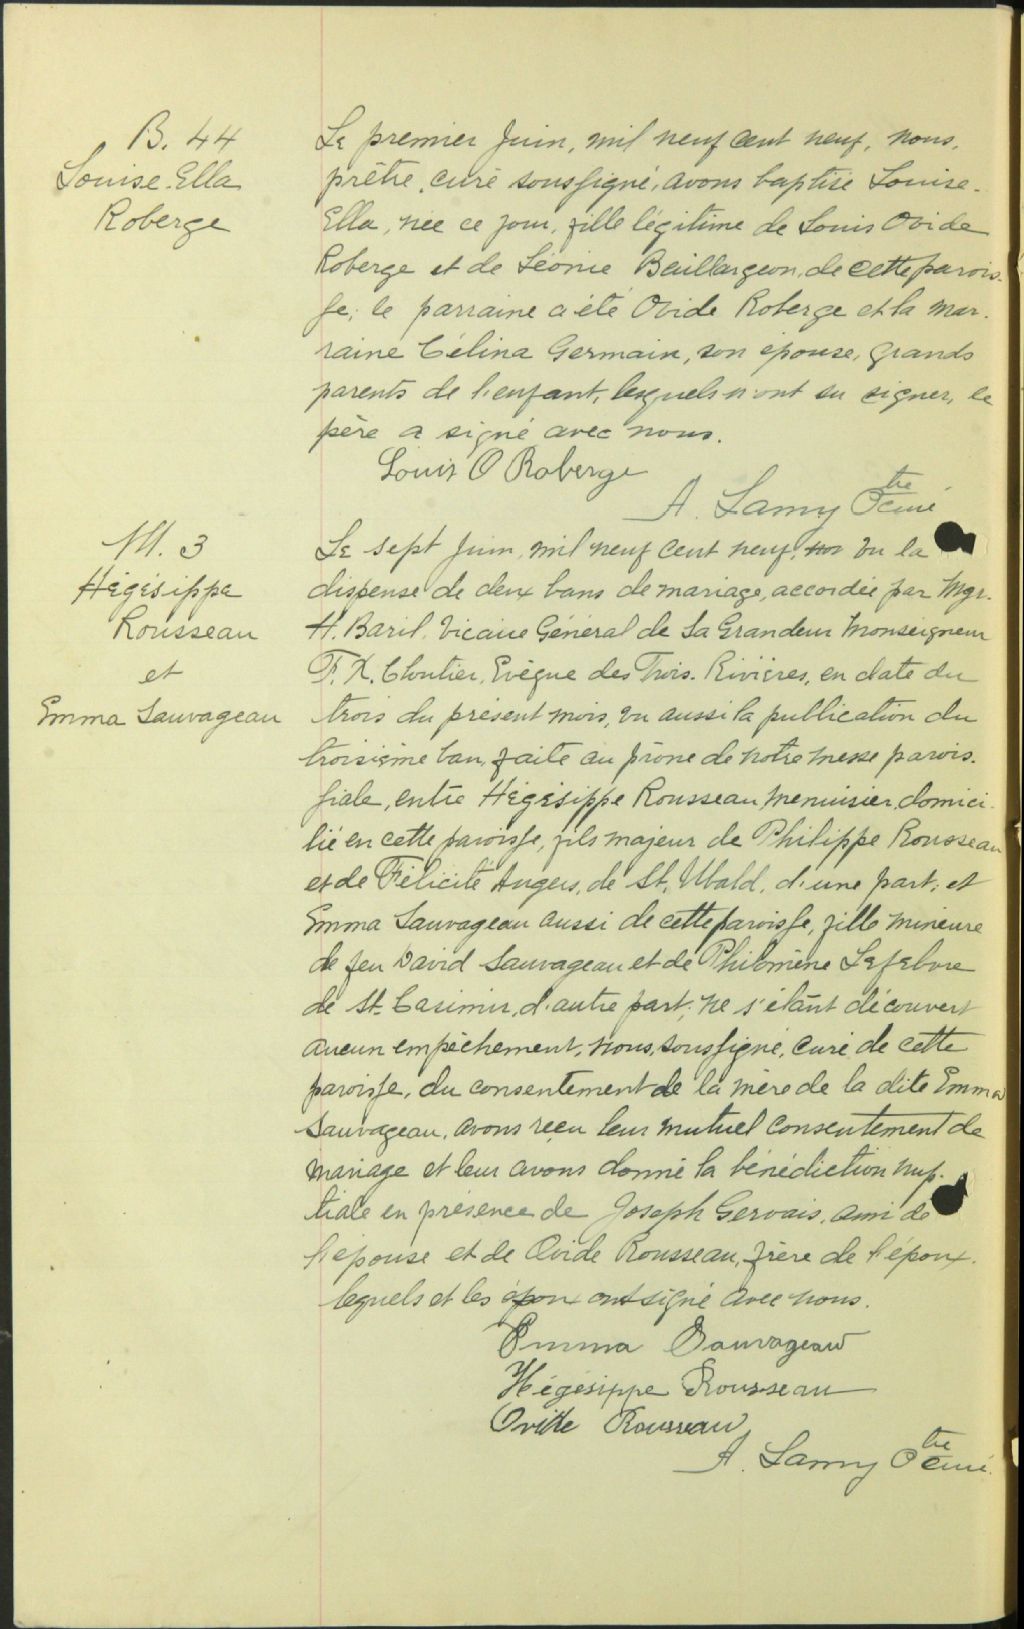 B. 44
Louise-Ella
Roberge
Le premier Juin, mil neuf cent neuf, nous,
prêtre, curé soussigné, avons baptisé Louise-
Ella, née ce jour, fille légitime de Louis Ovide
Roberge et de Léonie Baillargeon, de cette parois-
se; le parraine a été Ovide Roberge et la mar-
raine Célina Germain, son épouse, grands
parents de l'enfant, lesquels n'ont su signer, le
père a signé avec nous.
Louis O Roberge
A. Lamy Ptre curé
M. 3
Hégésippe
Rousseau
et
Emma Sauvageau
Le sept Juin, mil neuf cent neuf, vu la
dispense de deux bans de mariage, accordée par Mgr.
H. Baril, Vicaire Général de Sa Grandeur Monseigneur
F. X. Cloutier, Evêque des Trois-Rivières, en date du
trois du présent mois, vu aussi la publication du
troisième ban, faite au prône de notre messe parois-
siale, entre Hégésippe Rousseau, menuisier, domici-
lié en cette paroisse, fils majeur de Philippe Rousseau
et de Félicité Angers, de St. Ubald, d'une part; et
Emma Sauvageau aussi de cette paroisse, fille mineure
de feu David Sauvageau et de Philomène Lefebvre
de St-Casimir, d'autre part; ne s'étant découvert
aucun empêchement, nous, soussigné, curé de cette
paroisse, du consentement de la mère de la dite Emma
Sauvageau, avons reçu leur mutuel consentement de
mariage et leur avons donné la bénédiction nup-
tiale en présence de Joseph Gervais, ami de
l'épouse et de Ovide Rousseau, frère de l'époux,
lequels et les époux ont signé avec nous.
Emma Sauvageau
Hégésippe Rousseau
Ovide Rousseau
A. Lamy Ptre curé.